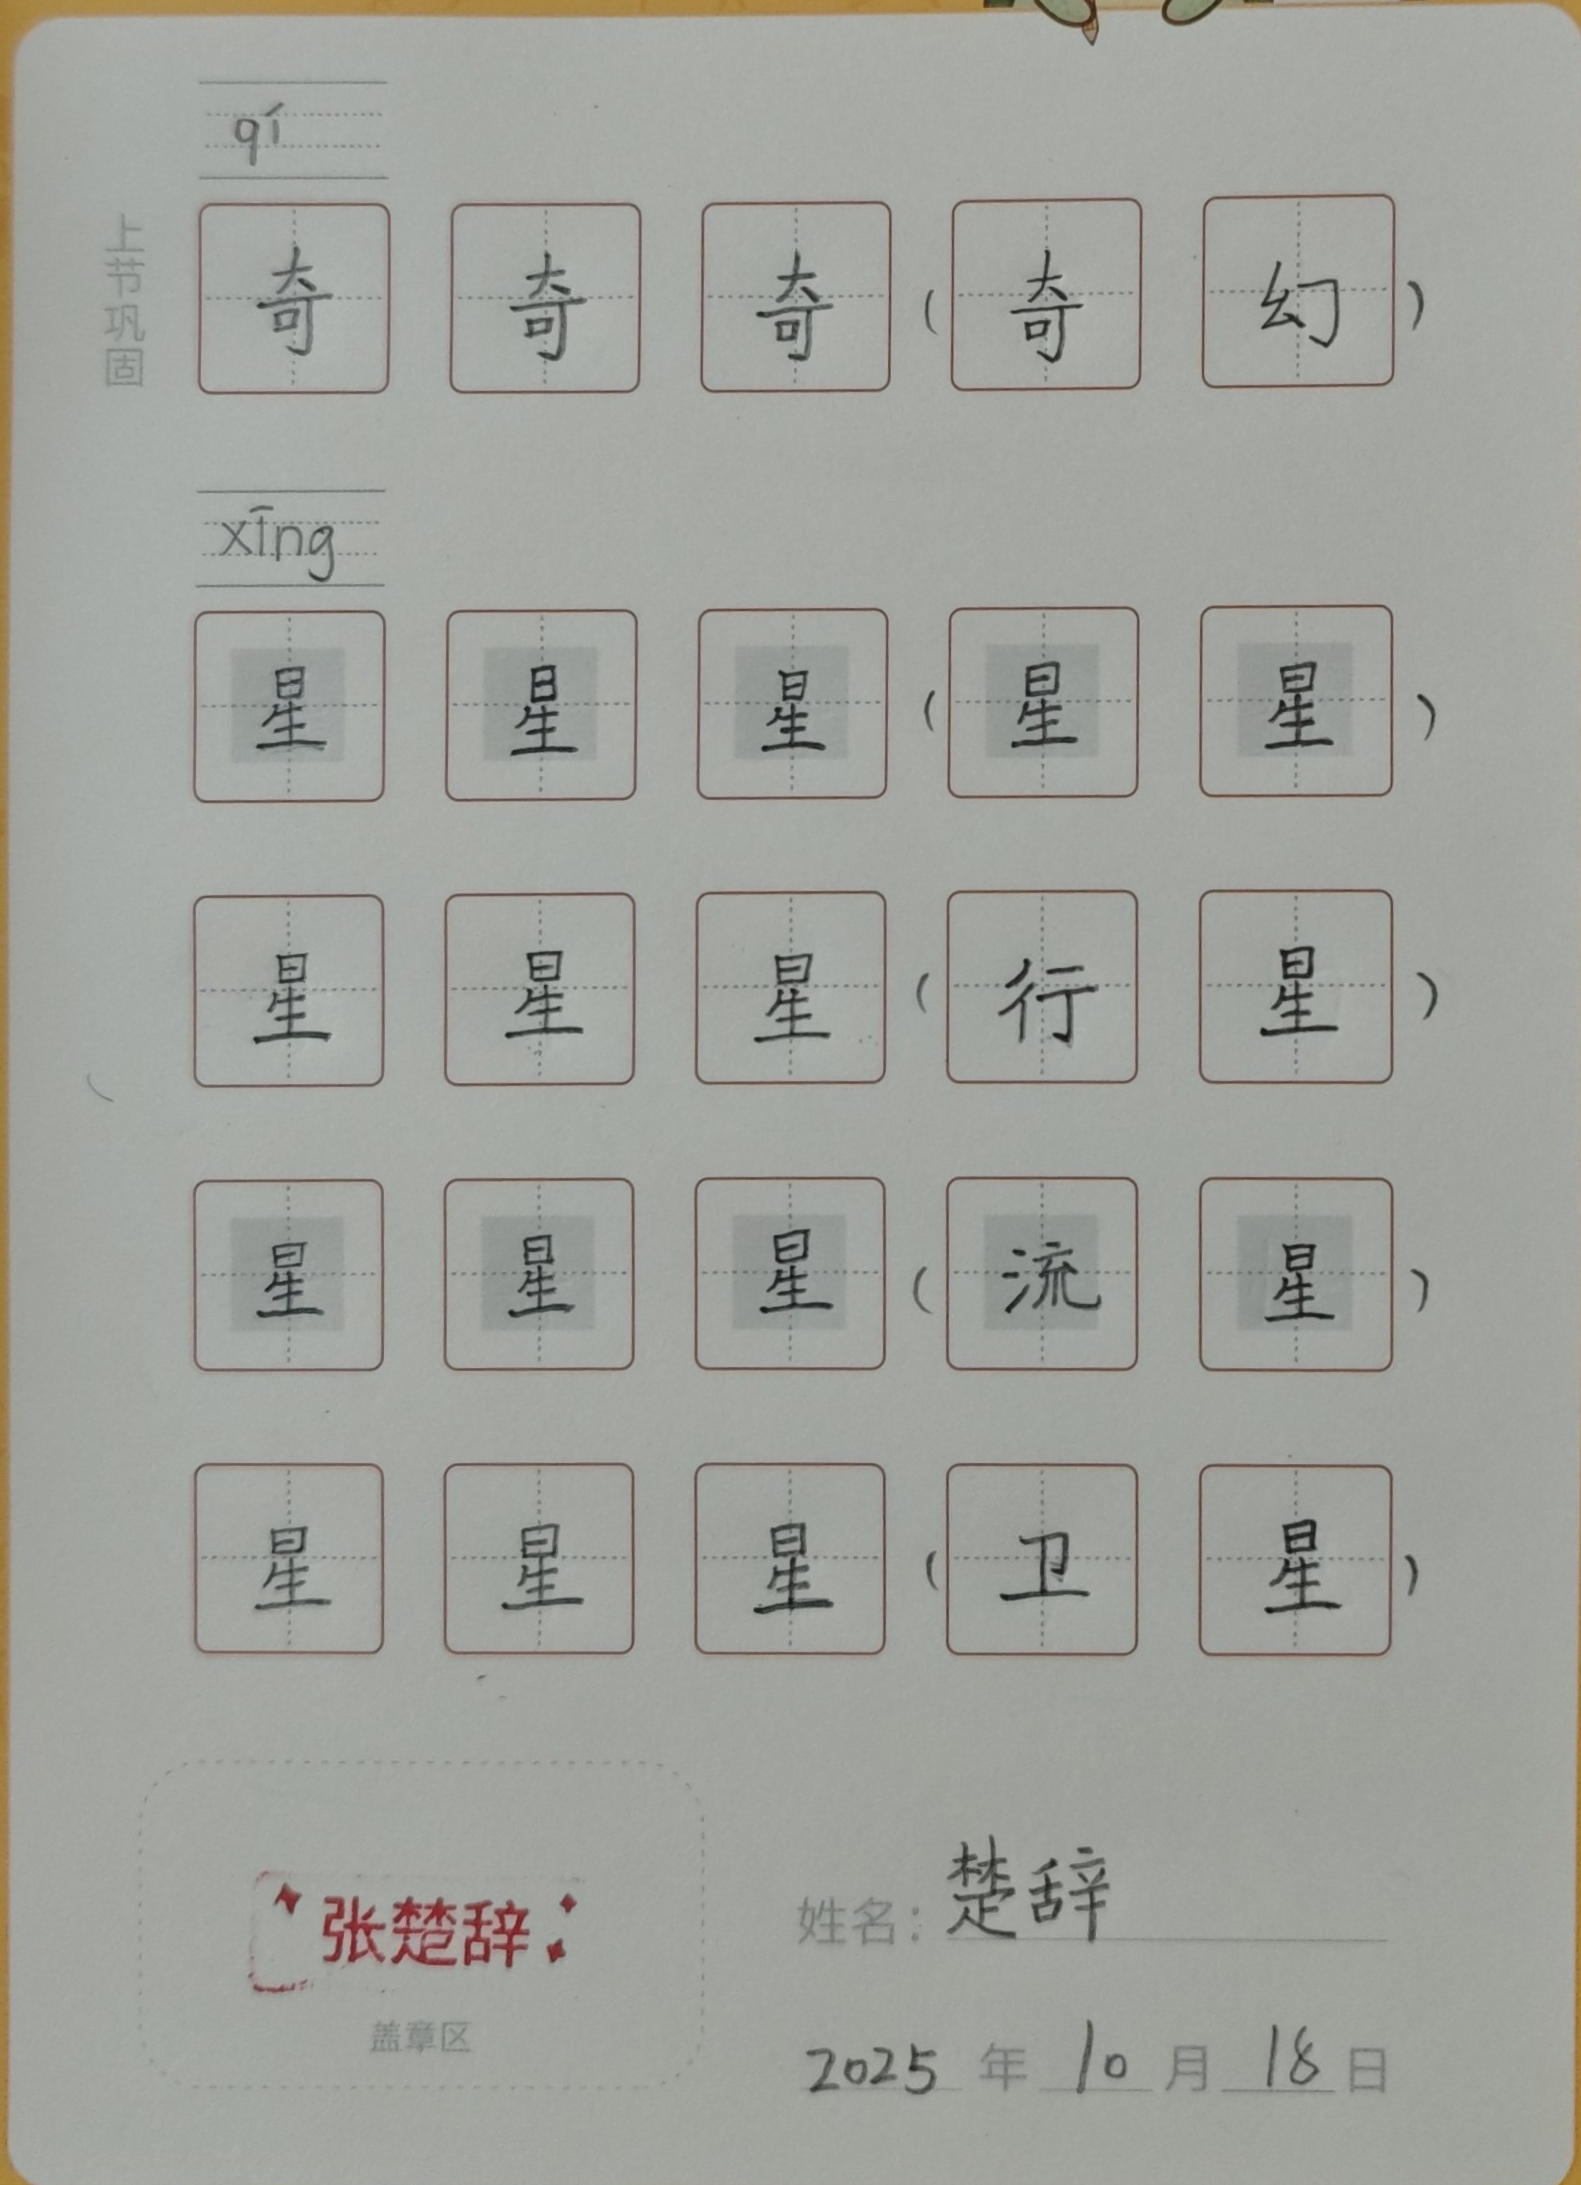 qí
上节巩固
奇 奇 奇 ( 奇 幻 )
xīng
星 星 星 ( 星 星 )
星 星 星 ( 行 星 )
星 星 星 ( 流 星 )
星 星 星 ( 卫 星 )
张楚辞
盖章区
姓名：楚辞
2025 年 10 月 18 日